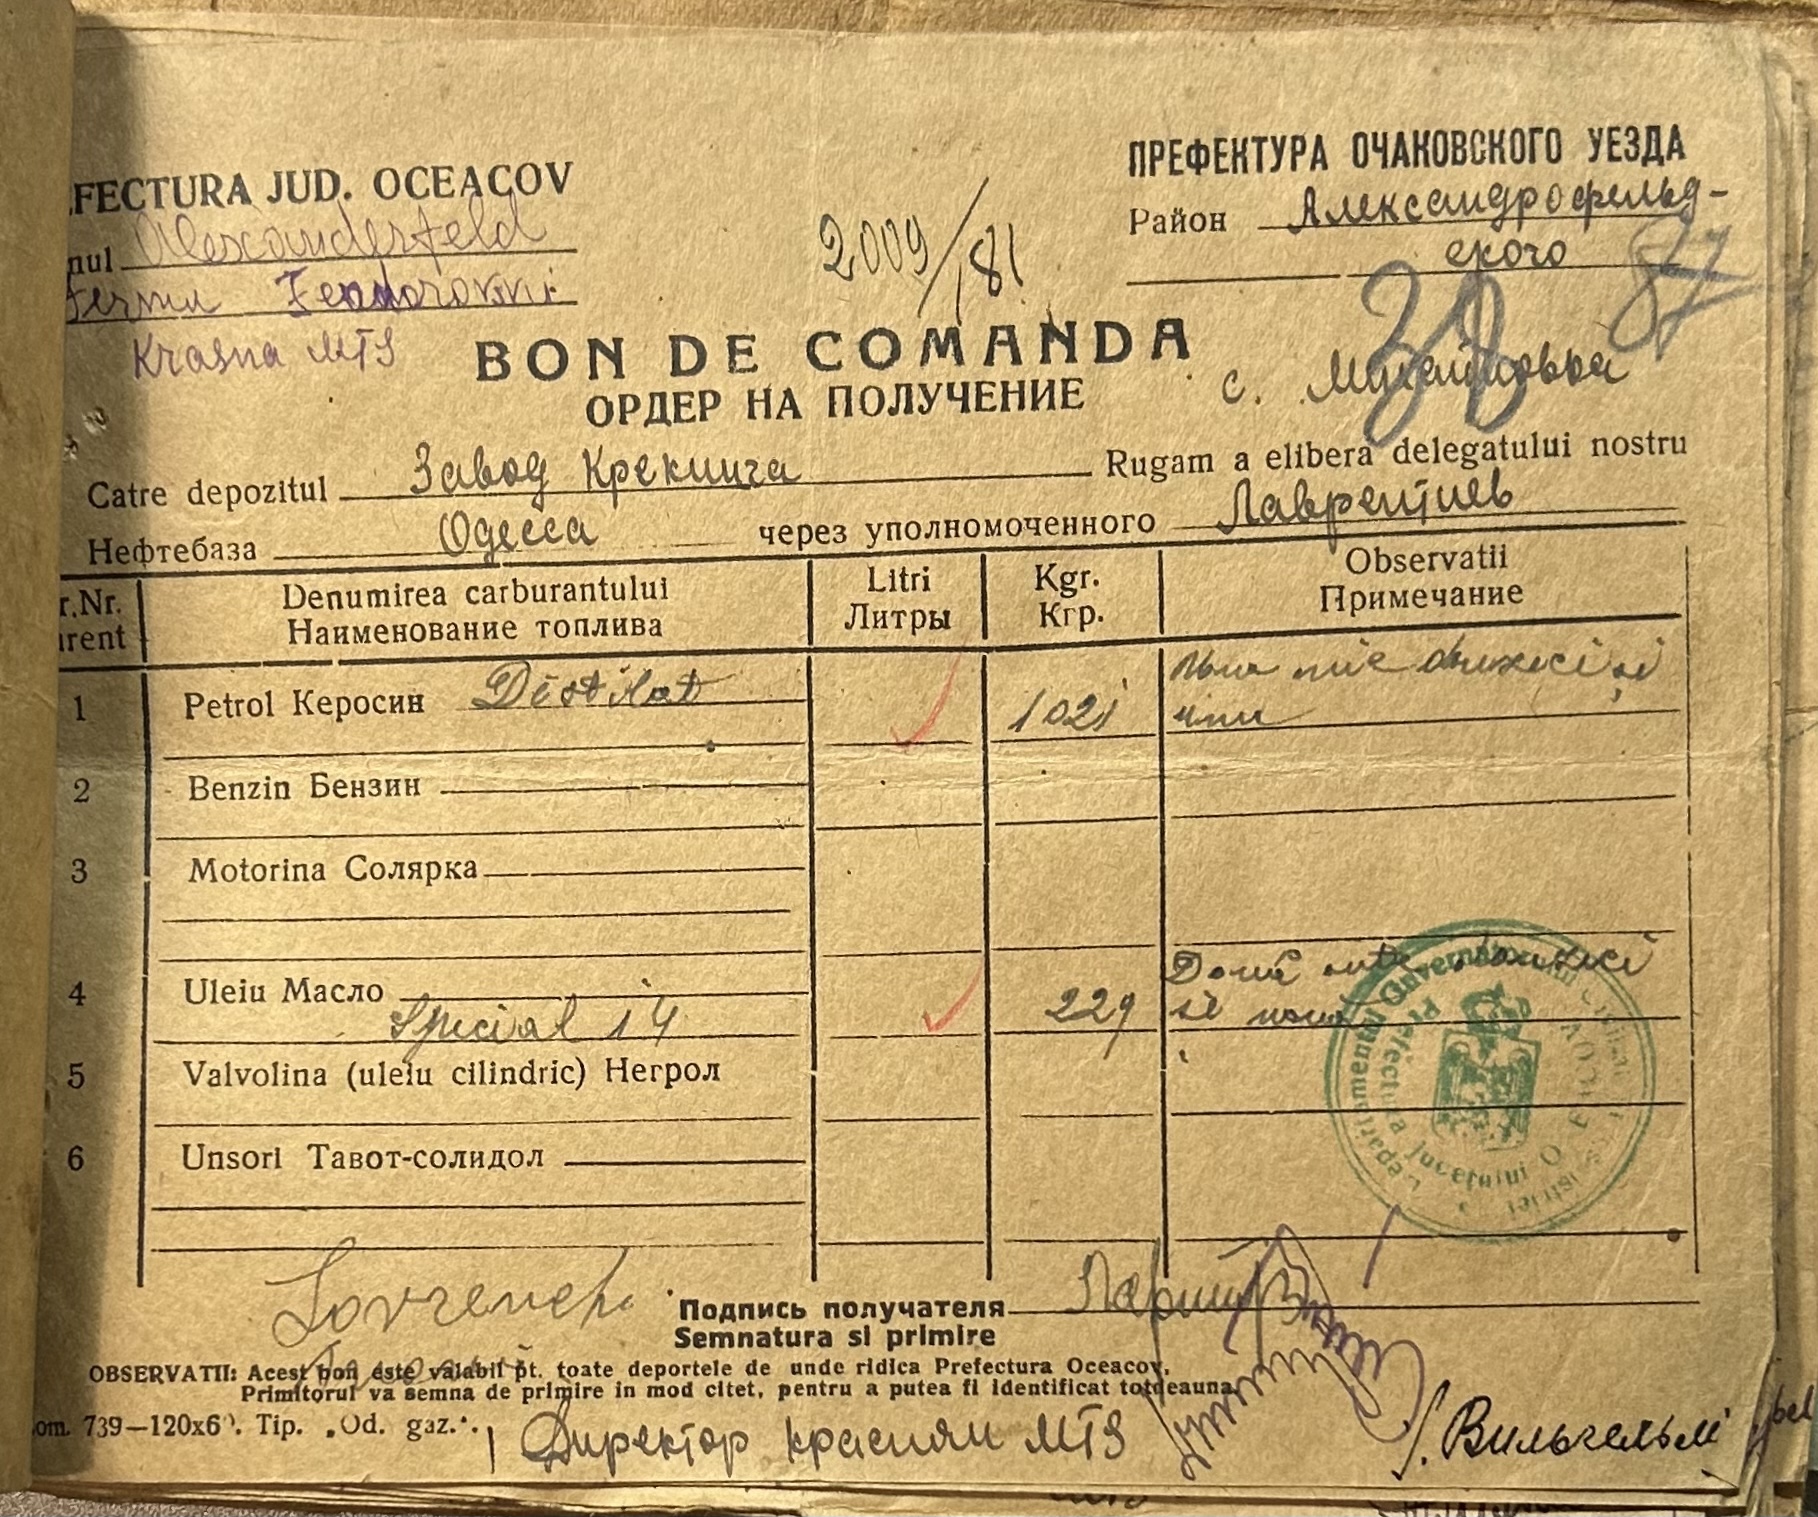 FECTURA JUD. OCEACOV
nul Alexanderfeld
Krasna MTS
2009/181
ПРЕФЕКТУРА ОЧАКОВСКОГО УЕЗДА
Район Александрофельд-
ского
38 87
BON DE COMANDA
ОРДЕР НА ПОЛУЧЕНИЕ
с. Михайловка
Catre depozitul Завод Крекинга Rugam a elibera delegatului nostru
Нефтебаза Одесса через уполномоченного Лаврентиев
r.Nr. Denumirea carburantului Litri Kgr. Observatii
urent Наименование топлива Литры Кгр. Примечание
1 Petrol Керосин Distilat 1021 Una mie douzeci si
unu
2 Benzin Бензин
3 Motorina Солярка
4 Uleiu Масло Special 14 229 Două sute douzeci
si nouă
5 Valvolina (uleiu cilindric) Негрол
6 Unsori Тавот-солидол
Guvernamentul
Prefectura Județului
Подпись получателя
Semnatura si primire
OBSERVATII: Acest bon este valabil pt. toate deportele de unde ridica Prefectura Oceacov,
Primitorul va semna de primire in mod citet, pentru a putea fi identificat totdeauna
om. 739—120x6 . Tip. „Od. gaz.“.
Директор красняи MTS
Вильгельм